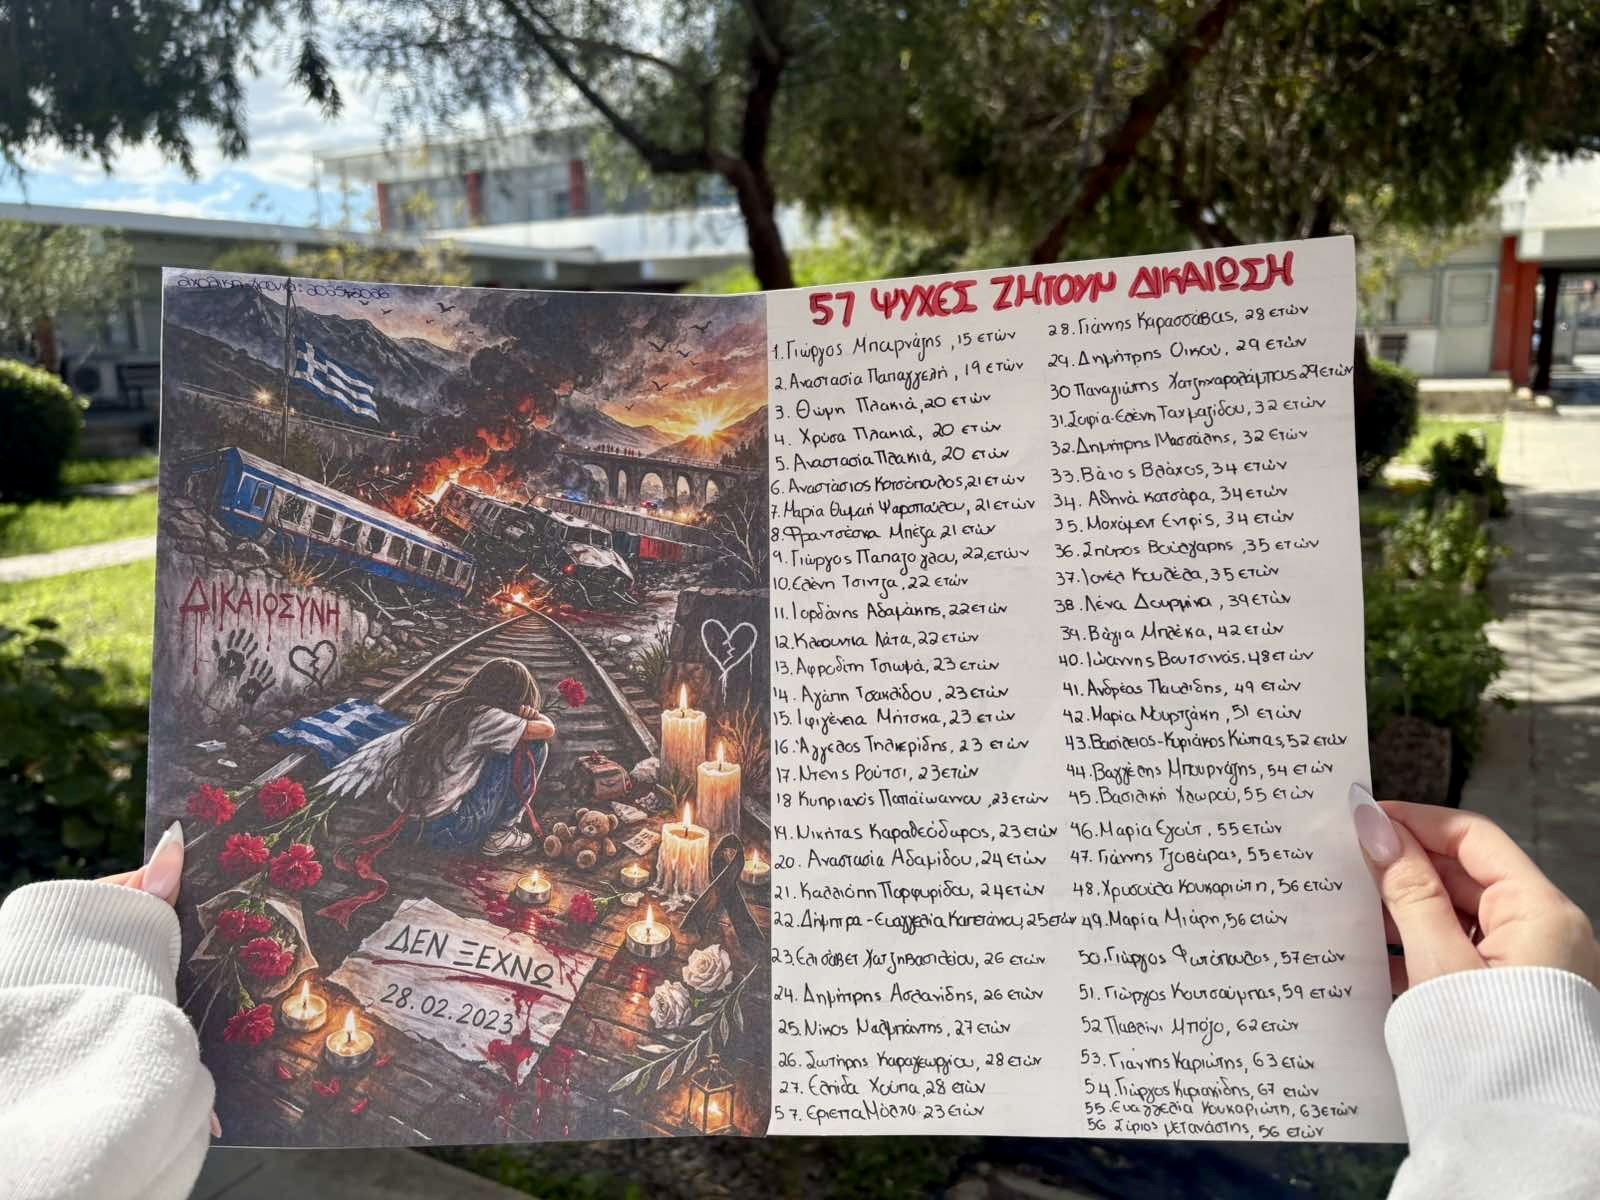 σχολική χρονιά: 2025-2026
ΔΙΚΑΙΟΣΥΝΗ
ΔΕΝ ΞΕΧΝΩ
28.02.2023
57 ΨΥΧΕΣ ΖΗΤΟΥΝ ΔΙΚΑΙΩΣΗ
1. Γιώργος Μπαρνάζης, 15 ετών
2. Αναστασία Παπαγγελή, 19 ετών
3. Θώμη Πλακιά, 20 ετών
4. Χρύσα Πλακιά, 20 ετών
5. Αναστασία Πλακιά, 20 ετών
6. Αναστάσιος Κοτσόπουλος, 21 ετών
7. Μαρία Θωμαή Ψαροπούλου, 21 ετών
8. Φραντσέσκα Μπέζα 21 ετών
9. Γιώργος Παπάζογλου, 22, ετών
10. Ελένη Τσίντζα, 22 ετών
11. Ιορδάνης Αδαμάκης, 22 ετών
12. Κλαουντια Λάτα, 22 ετών
13. Αφροδίτη Τσιωμά, 23 ετών
14. Αγάπη Τσακλίδου, 23 ετών
15. Ιφιγένεια Μήτσκα, 23 ετών
16. Άγγελος Τηλκερίδης, 23 ετών
17. Ντενις Ρούτσι, 23 ετών
18 Κυπριανός Παπαϊωαννου, 23 ετών
19. Νικήτας Καραθεόδωρος, 23 ετών
20. Αναστασία Αδαμίδου, 24 ετών
21. Καλλιόπη Πορφυρίδου, 24 ετών
22. Δήμητρα-Ευαγγελία Καπετάνιου, 25 ετών
23. Ελισάβετ Χατζηβασιλείου, 26 ετών
24. Δημήτρης Ασλανίδης, 26 ετών
25. Νίκος Ναλμπάντης, 27 ετών
26. Σωτήρης Καραγεωργίου, 28 ετών
27. Ελπίδα Χούπα 28 ετών
57. Εριέττα Μόλχο 23 ετών
28. Γιάννης Καρασσάββας, 28 ετών
29. Δημήτρης Οικού, 29 ετών
30 Παναγιώτης Χατζηχαραλάμπους 29 ετών
31. Σοφία-Ελένη Ταχμαζίδου, 32 ετών
32. Δημήτρης Μασσάλης, 32 ετών
33. Βάιος Βλάχος, 34 ετών
34. Αθηνά κατσάρα, 34 ετών
35. Μοχάμεντ Εντρίς, 34 ετών
36. Σπύρος Βούλγαρης, 35 ετών
37. Ιονέλ Κουλέα, 35 ετών
38. Λένα Δουρμίκα, 39 ετών
39. Βάγια Μπλέκα, 42 ετών
40. Ιωαννης Βουτσινάς, 48 ετών
41. Ανδρέας Παυλίδης, 49 ετών
42. Μαρία Μουρτζάκη, 51 ετών
43. Βασίλειος-Κυριάκος Κώττας, 52 ετών
44. Βαγγέλης Μπουρνάζης, 54 ετών
45. Βασιλική Χλωρού, 55 ετών
46. Μαρία Εγούτ, 55 ετών
47. Γιάννης Τζοβάρας, 55 ετών
48. Χρυσούλα Κουκαριώτη, 56 ετών
49. Μαρία Μιάρη, 56 ετών
50. Γιώργος Φωτόπουλος, 57 ετών
51. Γιώργος Κουτσούμπας, 59 ετών
52 Παβλίνι Μπόζο, 62 ετών
53. Γιάννης Καριώτης, 63 ετών
54. Γιώργος Κυριακίδης, 67 ετών
55. Ευαγγελία Κουκαριώτη, 63 ετών
56 Σύριος μετανάστης, 56 ετών